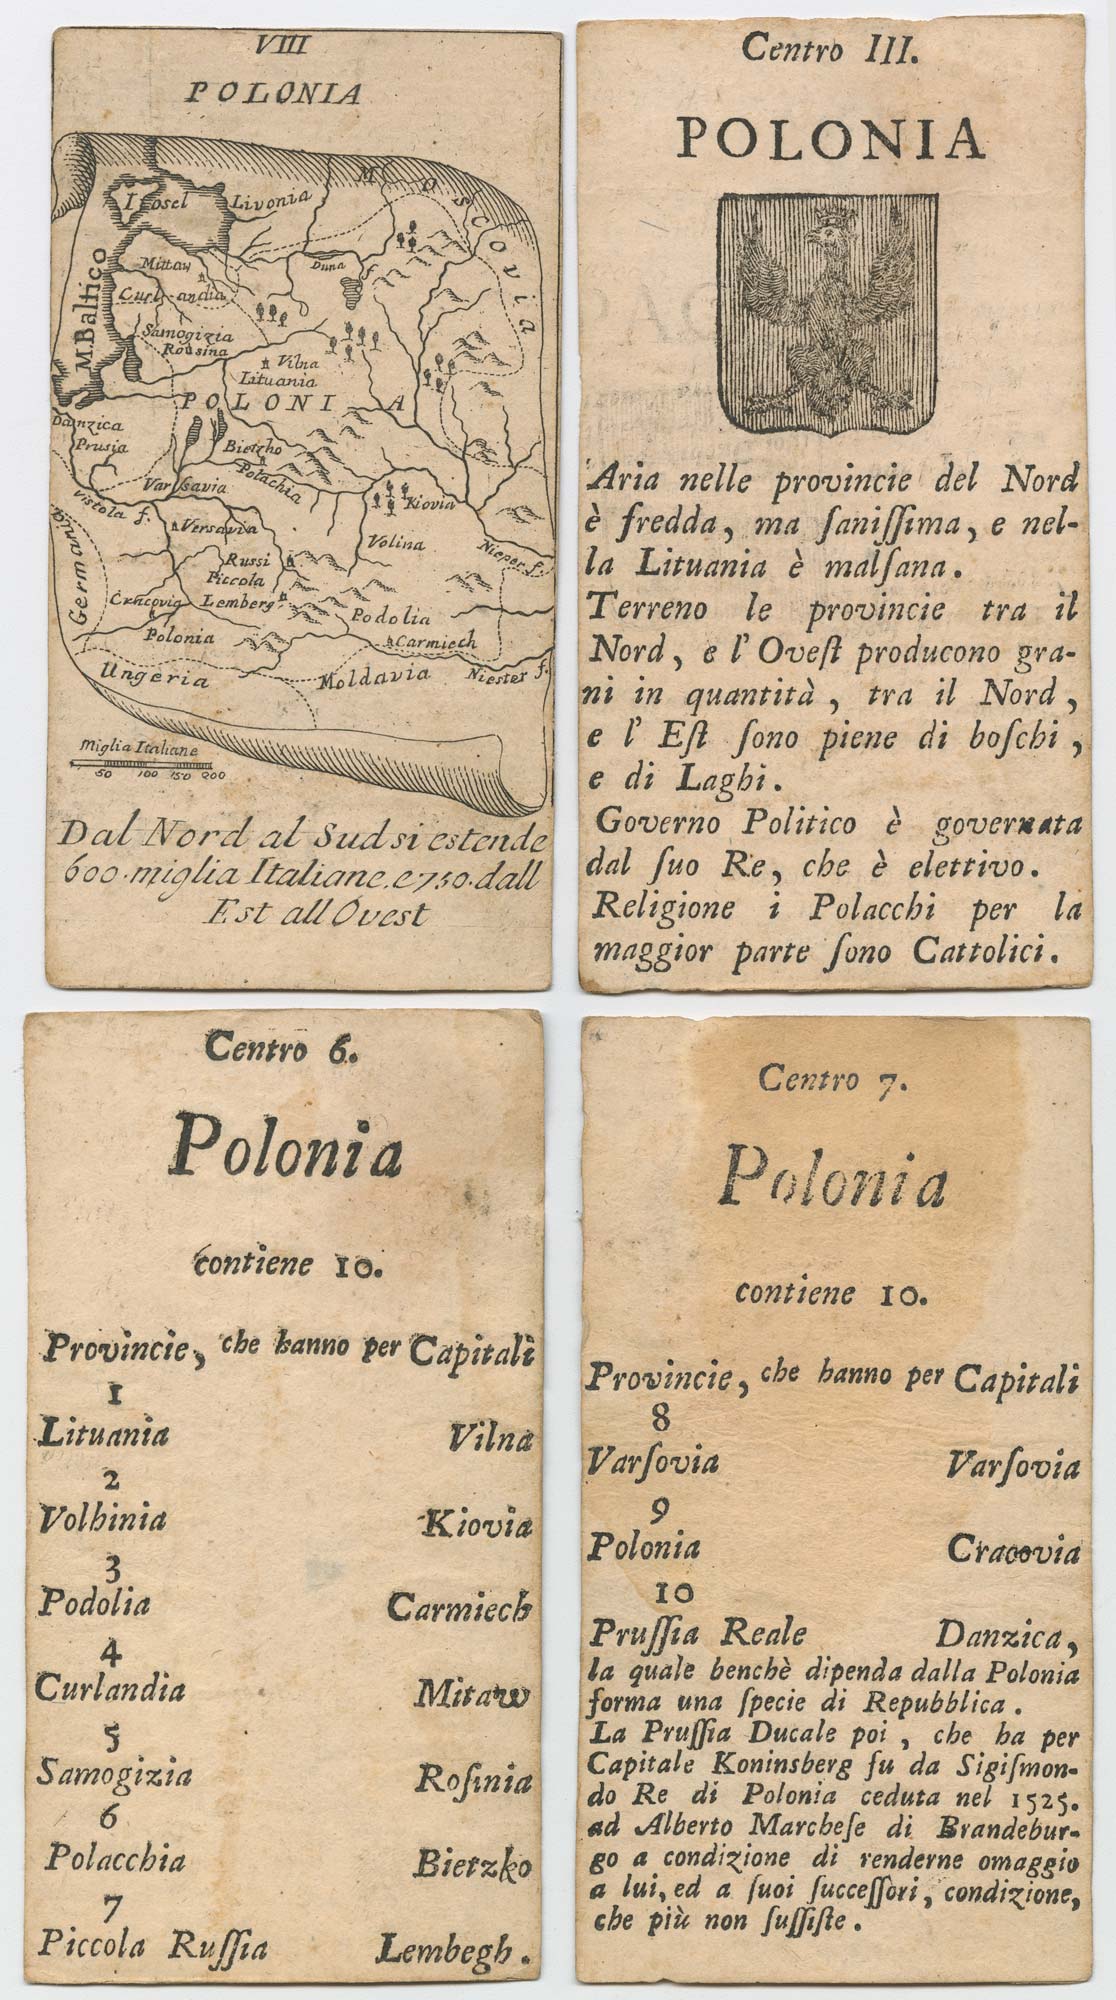 VIII
POLONIA
MOSCOVIA
I Osel
Livonia
M. Baltico
Mittaw
Duna f.
Curlandia
Samogizia
Rossina
Vilna
Lituania
POLONIA
Danzica
Prusia
Bietzko
Polachia
Varssavia
Kiovia
Vistola f.
Versavia
Volina
Nieper f.
Germania
Russi
Piccola
Cracovia
Lemberg
Podolia
Polonia
Carmiech
Ungeria
Moldavia
Niester f.
Miglia Italiane
50 100 150 200
Dal Nord al Sud si estende
600. miglia Italiane. e 750. dall
Est all Ovest
Centro III.
POLONIA
Aria nelle provincie del Nord
è fredda, ma ſaniſſima, e nel-
la Lituania è malſana.
Terreno le provincie tra il
Nord, e l' Oveſt producono gra-
ni in quantità, tra il Nord,
e l' Eſt ſono piene di boſchi,
e di Laghi.
Governo Politico è governata
dal ſuo Re, che è elettivo.
Religione i Polacchi per la
maggior parte ſono Cattolici.
Centro 6.
Polonia
contiene 10.
Provincie, che hanno per Capitali
1
Lituania Vilna
2
Volhinia Kiovia
3
Podolia Carmiech
4
Curlandia Mitaw
5
Samogizia Roſinia
6
Polacchia Bietzko
7
Piccola Ruſſia Lembegh.
Centro 7.
Polonia
contiene 10.
Provincie, che hanno per Capitali
8
Varſovia Varſovia
9
Polonia Cracovia
10
Pruſſia Reale Danzica,
la quale benchè dipenda dalla Polonia
forma una ſpecie di Repubblica.
La Pruſſia Ducale poi, che ha per
Capitale Koninsberg fu da Sigiſmon-
do Re di Polonia ceduta nel 1525.
ad Alberto Marcheſe di Brandebur-
go a condizione di renderne omaggio
a lui, ed a ſuoi ſucceſſori, condizione,
che più non ſuſſiſte.